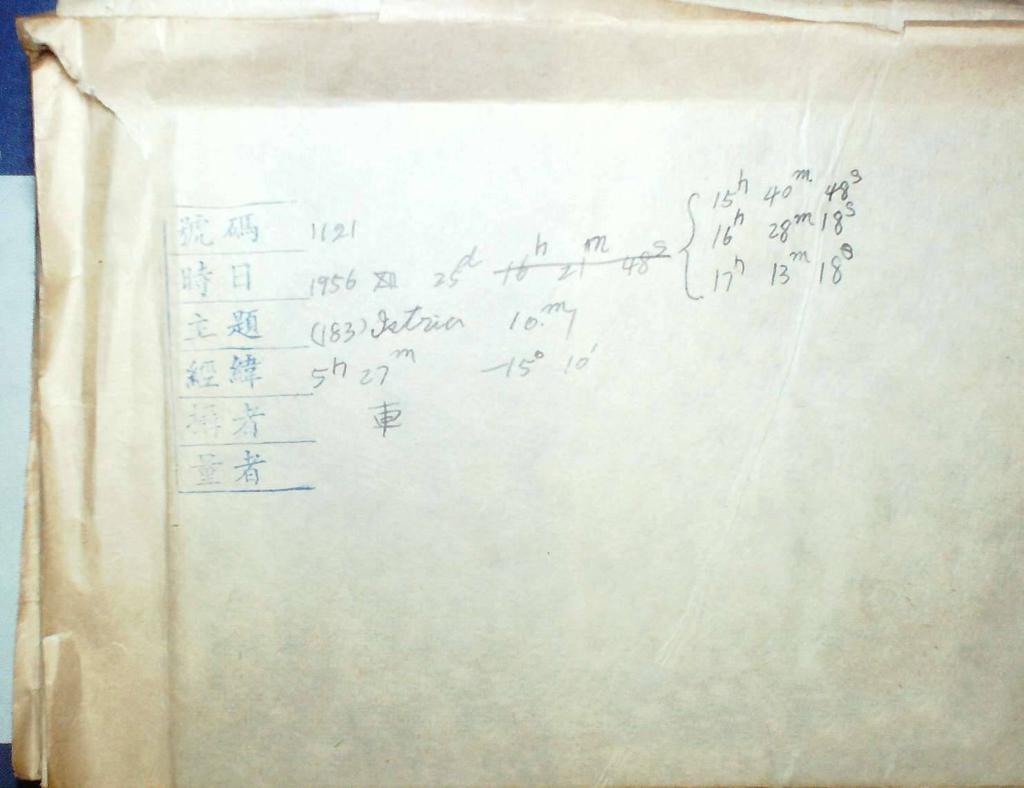 號碼 1121
時日 1956 XII 25d 16h 21m 48s { 15h 40m 48s
16h 28m 18s
17h 13m 18s
主題 (183) Istria 10.m7
經緯 5h 27m -15° 10'
攝者 車
量者